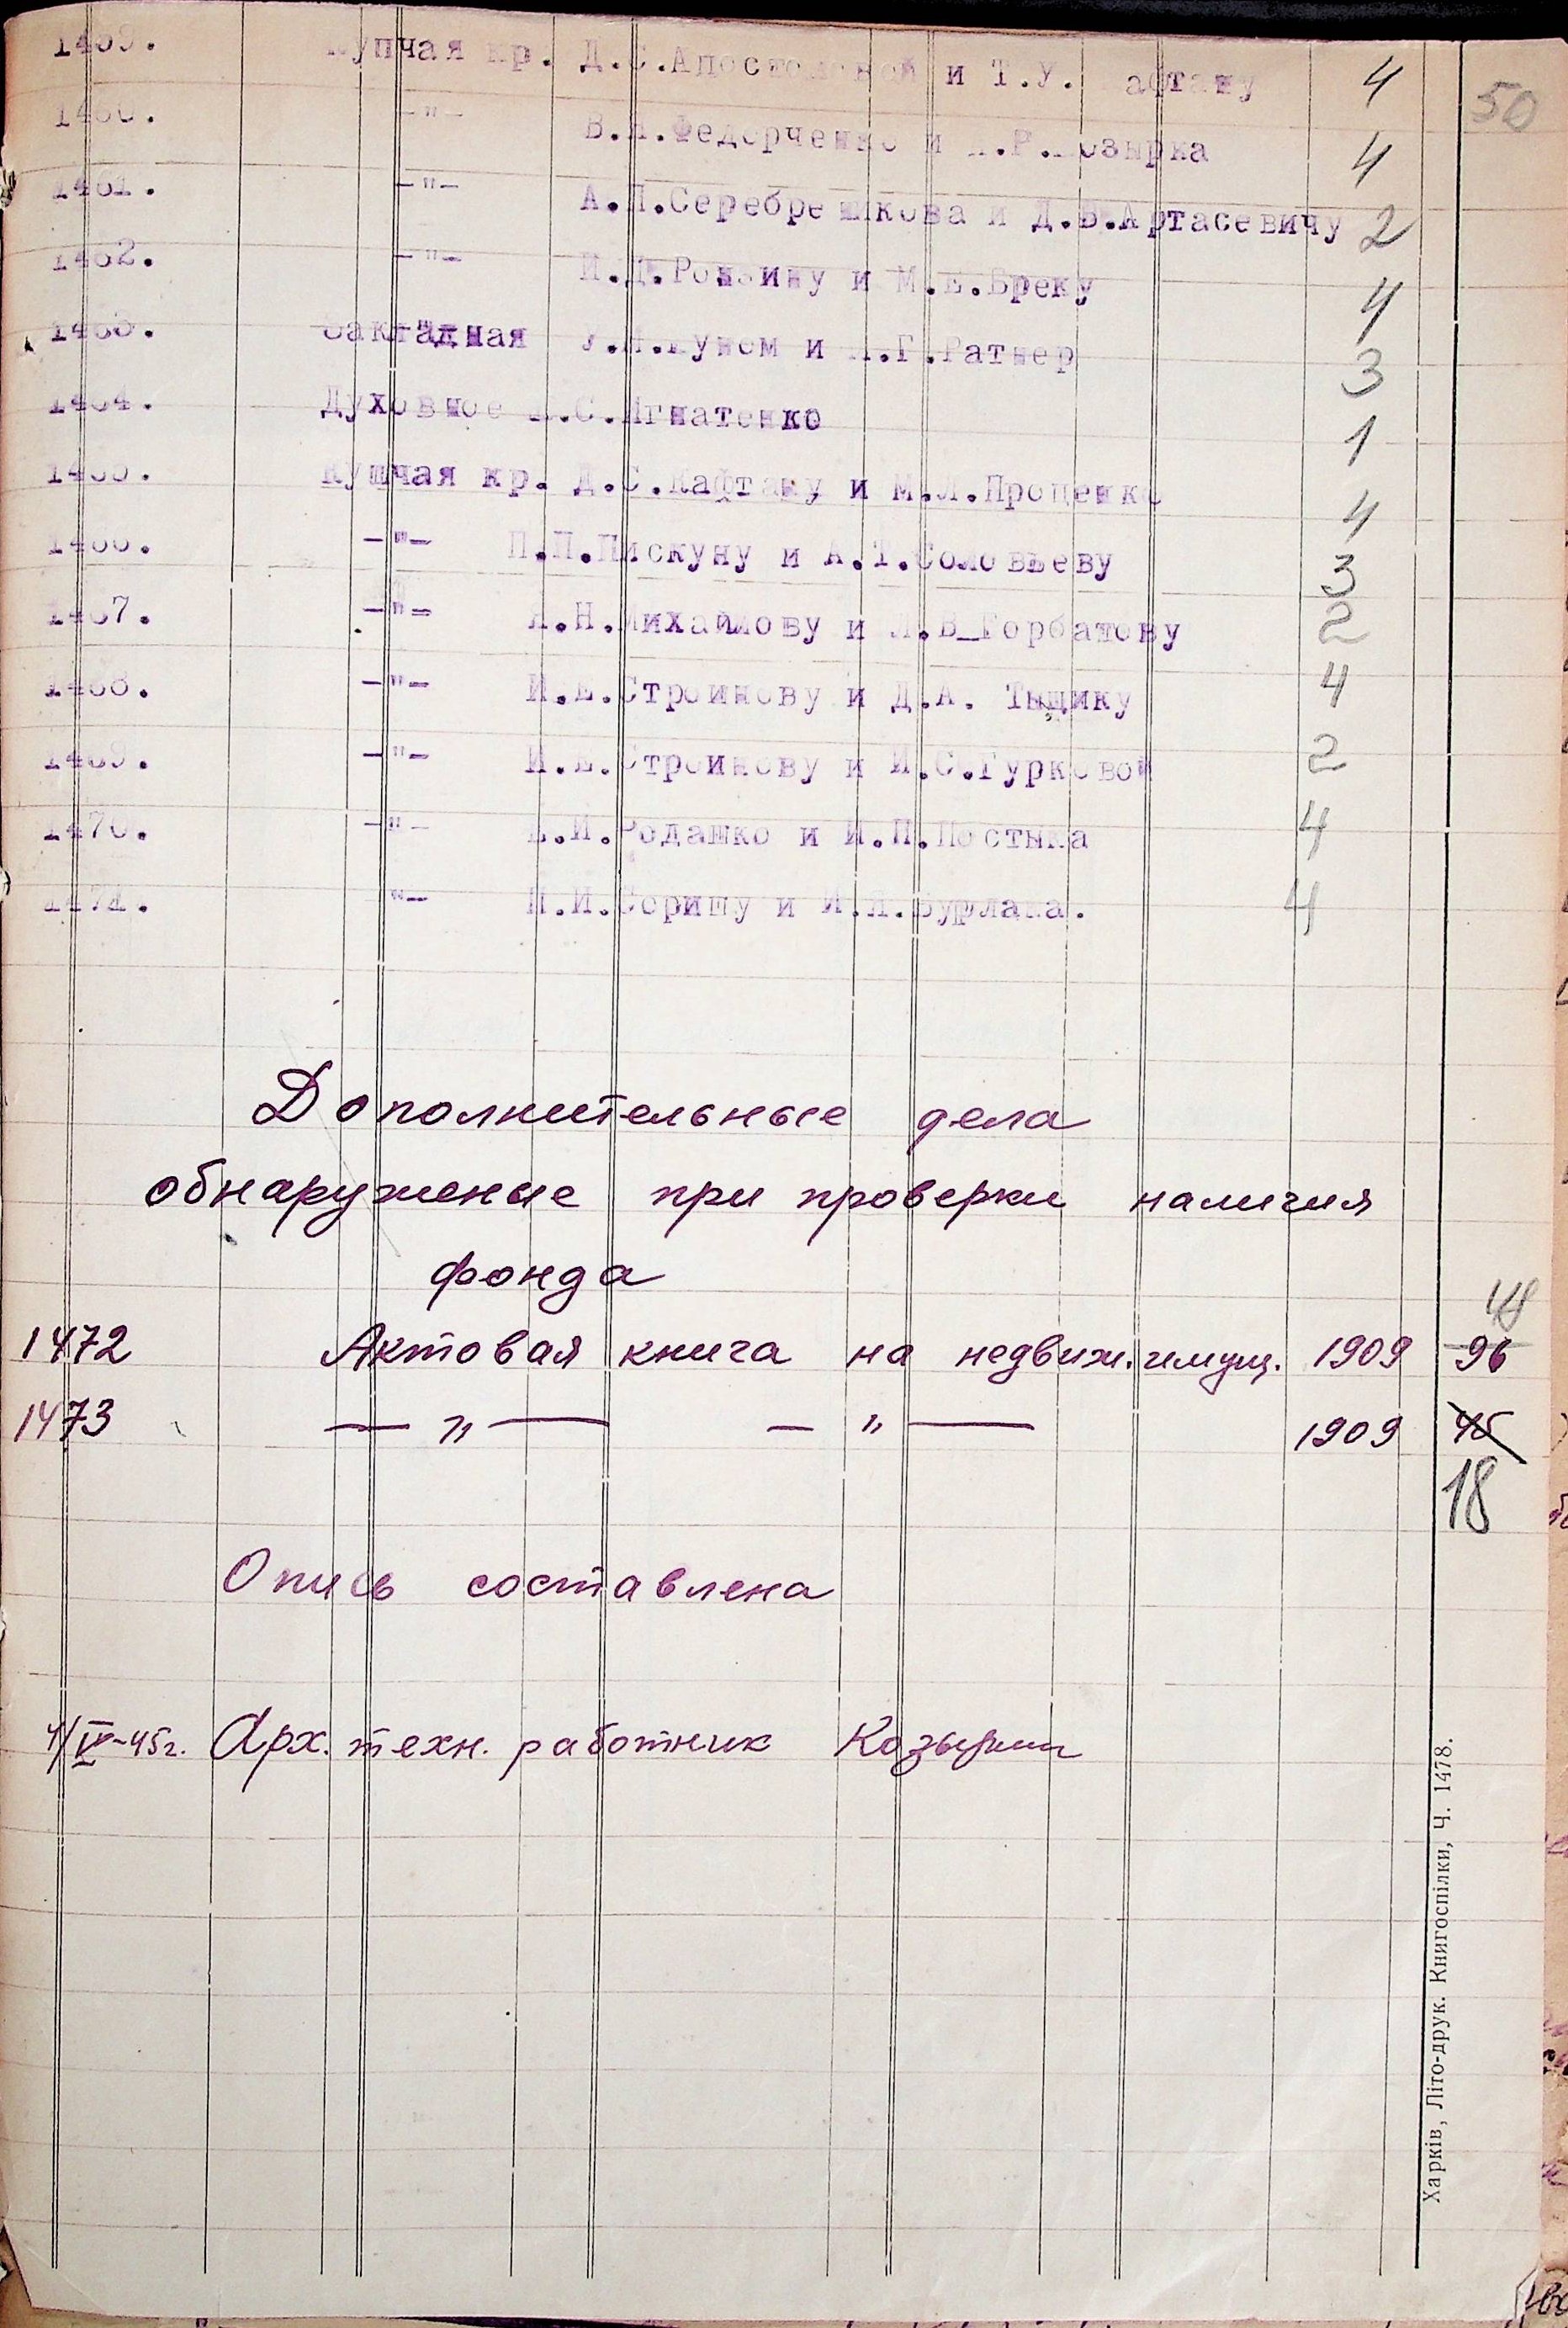 1459. Купчая кр. Д.С.Апостоловой и Т.У. афтану 4 50
1460. -"- В.Л.Федорченко и .Р.Козырка 4
1461. -"- А.П.Серебрешкова и Д.В.Артасевичу 2
1462. -"- И.Д.Ронзину и М.Е.Бреку 4
1463. Закладная и .Г.Ратнер 3
1464. Духовное .С.Игнатенко 1
1465. Купчая кр. Д.С.Кафтану и М.Л.Проценко 4
1466. -"- П.П.Пискуну и А.Т.Соловьеву 3
1467. -"- А.Н.Михайлову и Л.В_Горбатову 2
1468. -"- И.Е.Строинову и Д.А. Тыщику 4
1469. -"- И.Е.Строинову и И.С.Гурковой 2
1470. -"- Е.И.Родашко и И.П.Постыка 4
1471. "- П.И.Сорину и И.Л.Бурлака. 4
Дополнительные дела
обнаруженые при проверки наличия
фонда
48
1472 Актовая книга на недвиж. имущ. 1909 96
1473 — „ — — „ — 1909 45
18
Опись составлена
4/IV-45г. Арх. техн. работник
Харків, Літо-друк. Книгоспілки, Ч. 1478.